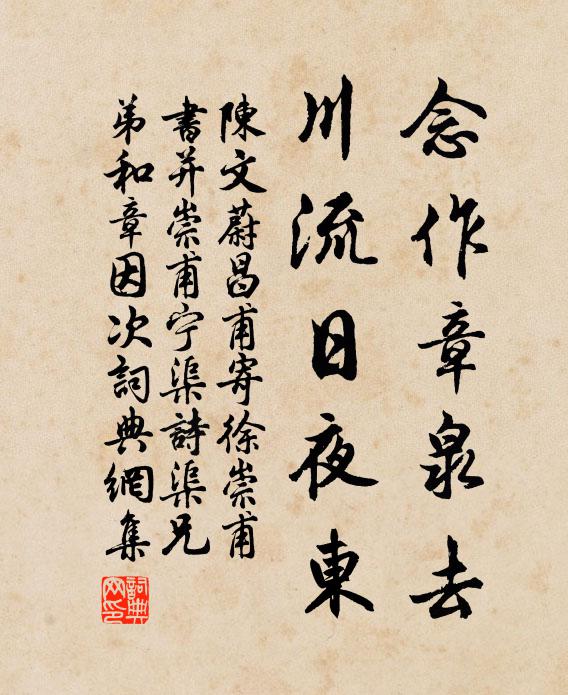 念作章泉去
川流日夜東
陳文蔚昌甫寄徐崇甫
書并崇甫宁渠詩渠兄
弟和章因次詞典網集
詞典網印